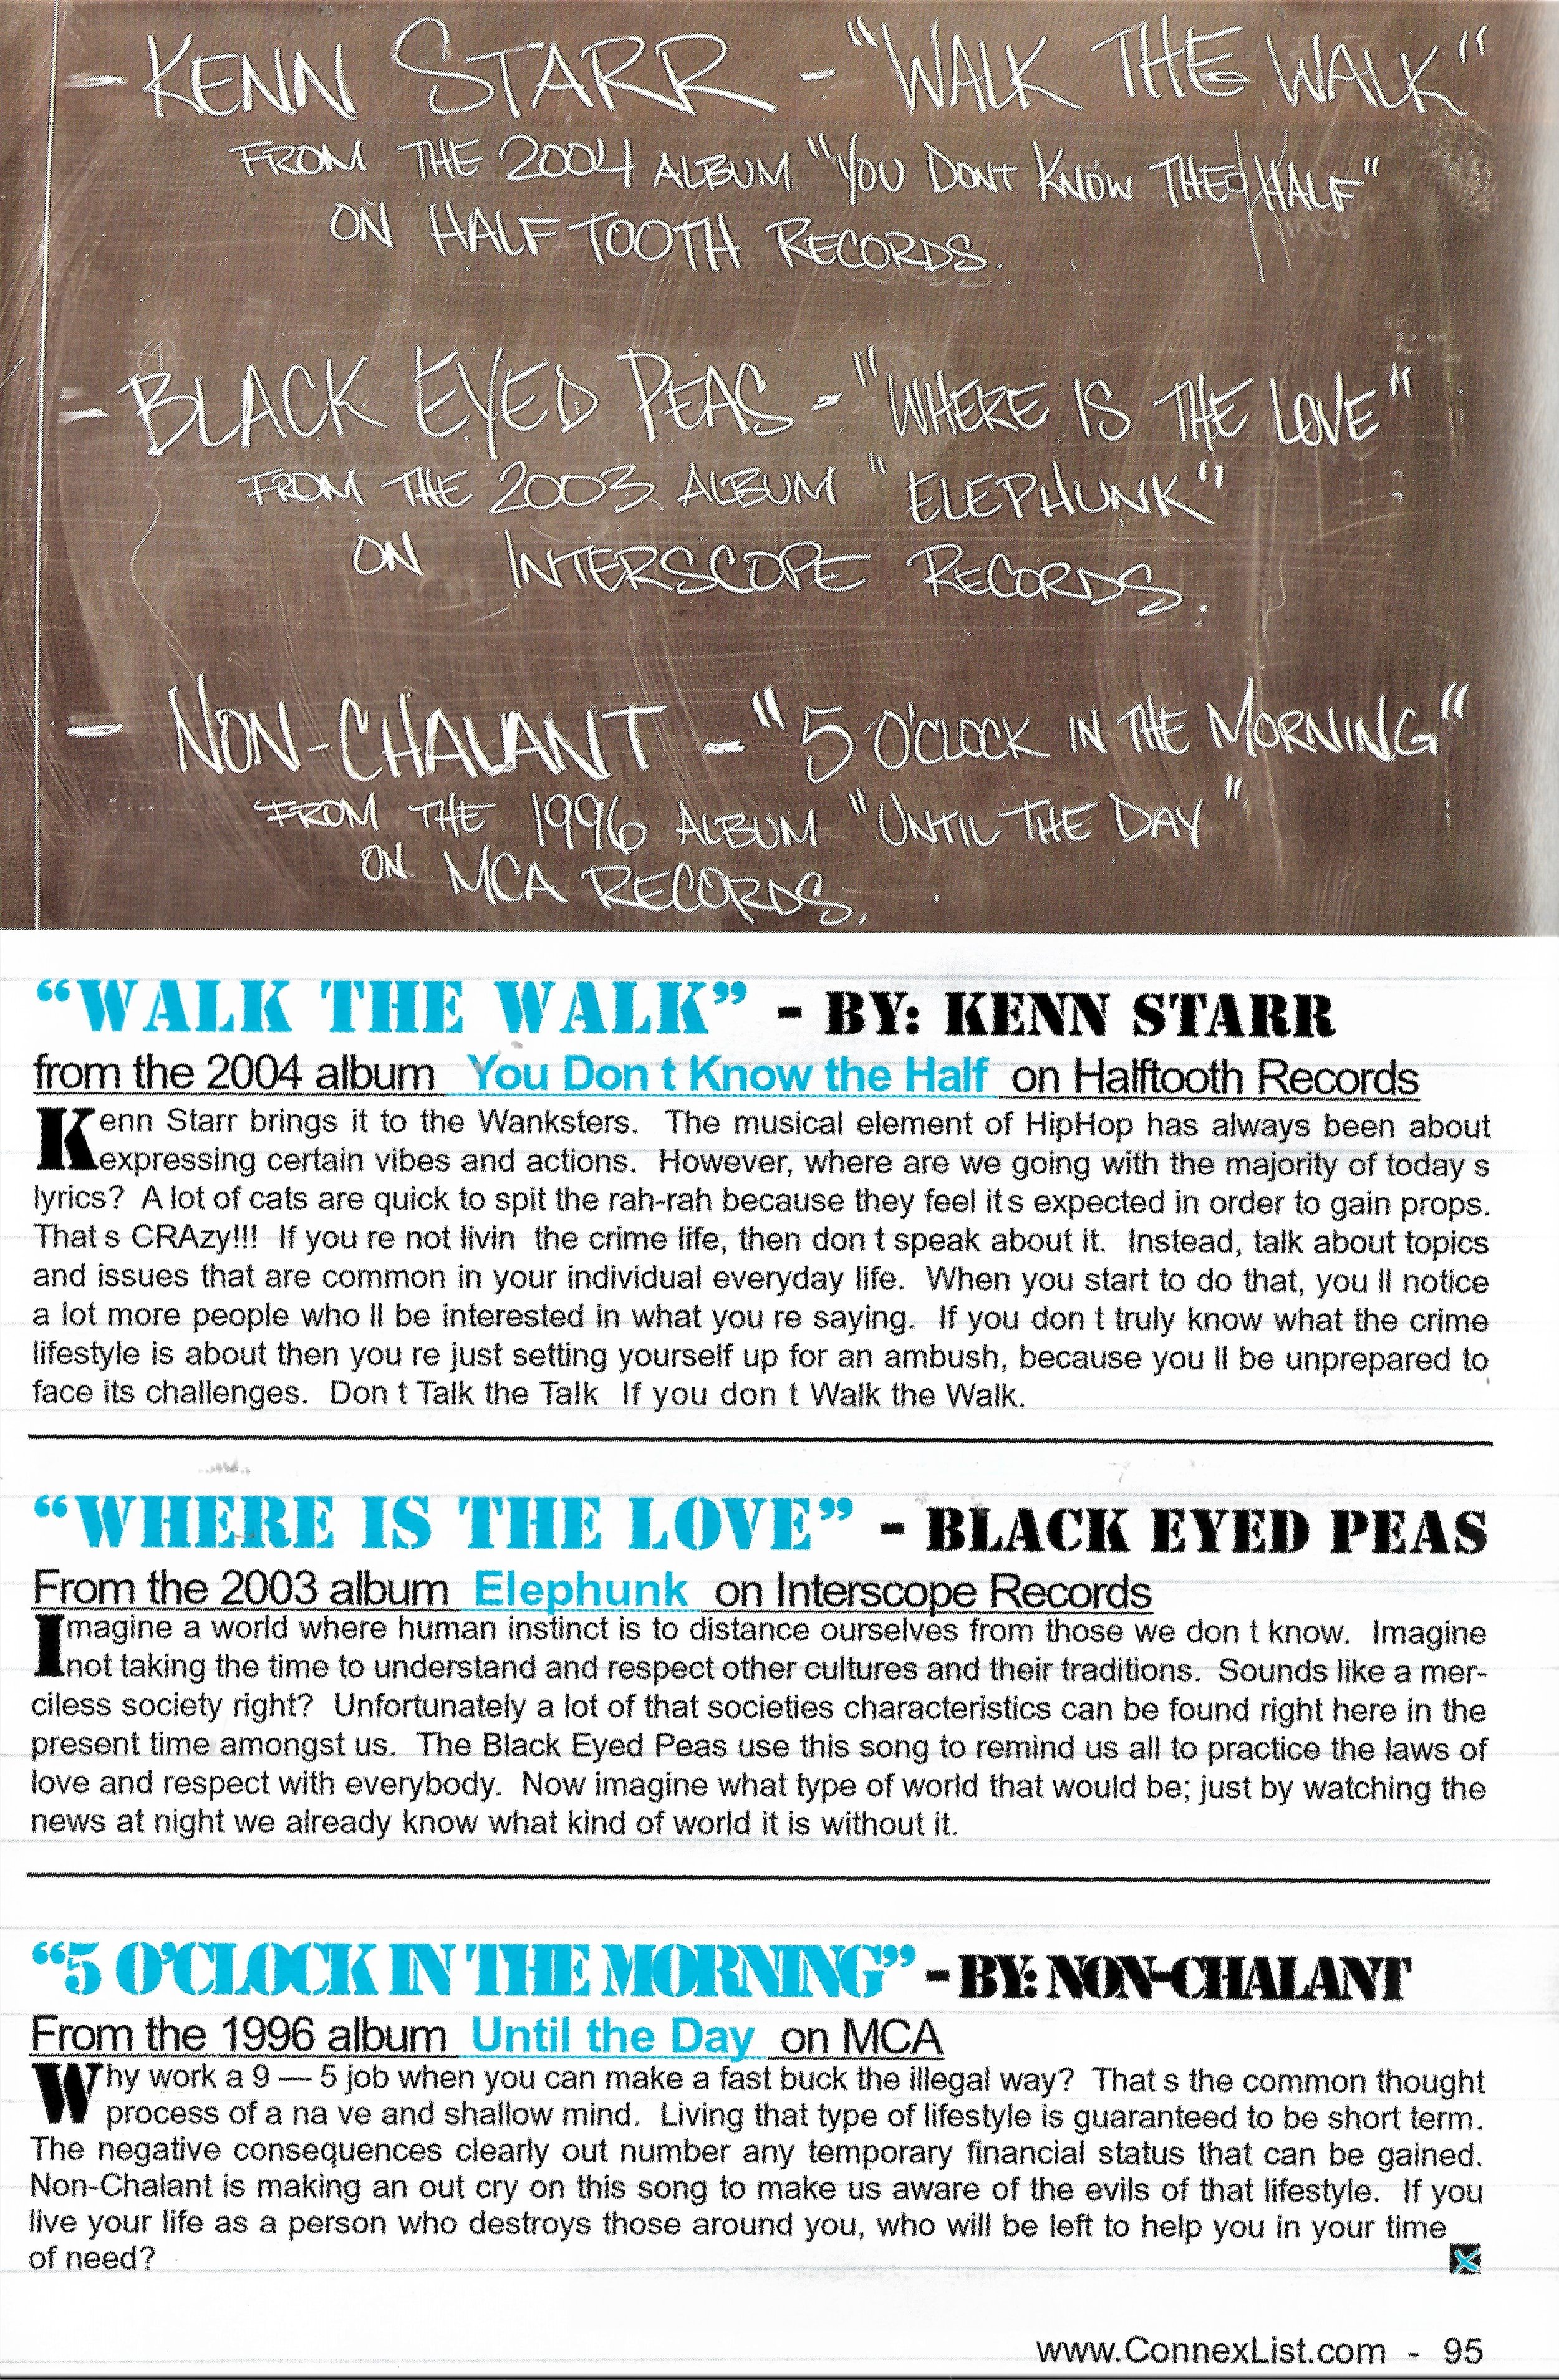 - KENN STARR - "WALK THE WALK"
FROM THE 2004 ALBUM "YOU DONT KNOW THE HALF"
ON HALF TOOTH RECORDS.
- BLACK EYED PEAS - "WHERE IS THE LOVE"
FROM THE 2003 ALBUM "ELEPHUNK"
ON INTERSCOPE RECORDS.
- NON-CHALANT - "5 O'CLOCK IN THE MORNING"
FROM THE 1996 ALBUM "UNTIL THE DAY"
ON MCA RECORDS.
“WALK THE WALK” - BY: KENN STARR
from the 2004 album You Don t Know the Half on Halftooth Records
Kenn Starr brings it to the Wanksters. The musical element of HipHop has always been about
expressing certain vibes and actions. However, where are we going with the majority of today s
lyrics? A lot of cats are quick to spit the rah-rah because they feel it s expected in order to gain props.
That s CRAzy!!! If you re not livin the crime life, then don t speak about it. Instead, talk about topics
and issues that are common in your individual everyday life. When you start to do that, you ll notice
a lot more people who ll be interested in what you re saying. If you don t truly know what the crime
lifestyle is about then you re just setting yourself up for an ambush, because you ll be unprepared to
face its challenges. Don t Talk the Talk If you don t Walk the Walk.
“WHERE IS THE LOVE” - BLACK EYED PEAS
From the 2003 album Elephunk on Interscope Records
Imagine a world where human instinct is to distance ourselves from those we don t know. Imagine
not taking the time to understand and respect other cultures and their traditions. Sounds like a mer-
ciless society right? Unfortunately a lot of that societies characteristics can be found right here in the
present time amongst us. The Black Eyed Peas use this song to remind us all to practice the laws of
love and respect with everybody. Now imagine what type of world that would be; just by watching the
news at night we already know what kind of world it is without it.
“5 O’CLOCK IN THE MORNING” - BY: NON-CHALANT
From the 1996 album Until the Day on MCA
Why work a 9 — 5 job when you can make a fast buck the illegal way? That s the common thought
process of a na ve and shallow mind. Living that type of lifestyle is guaranteed to be short term.
The negative consequences clearly out number any temporary financial status that can be gained.
Non-Chalant is making an out cry on this song to make us aware of the evils of that lifestyle. If you
live your life as a person who destroys those around you, who will be left to help you in your time
of need?
www.ConnexList.com - 95